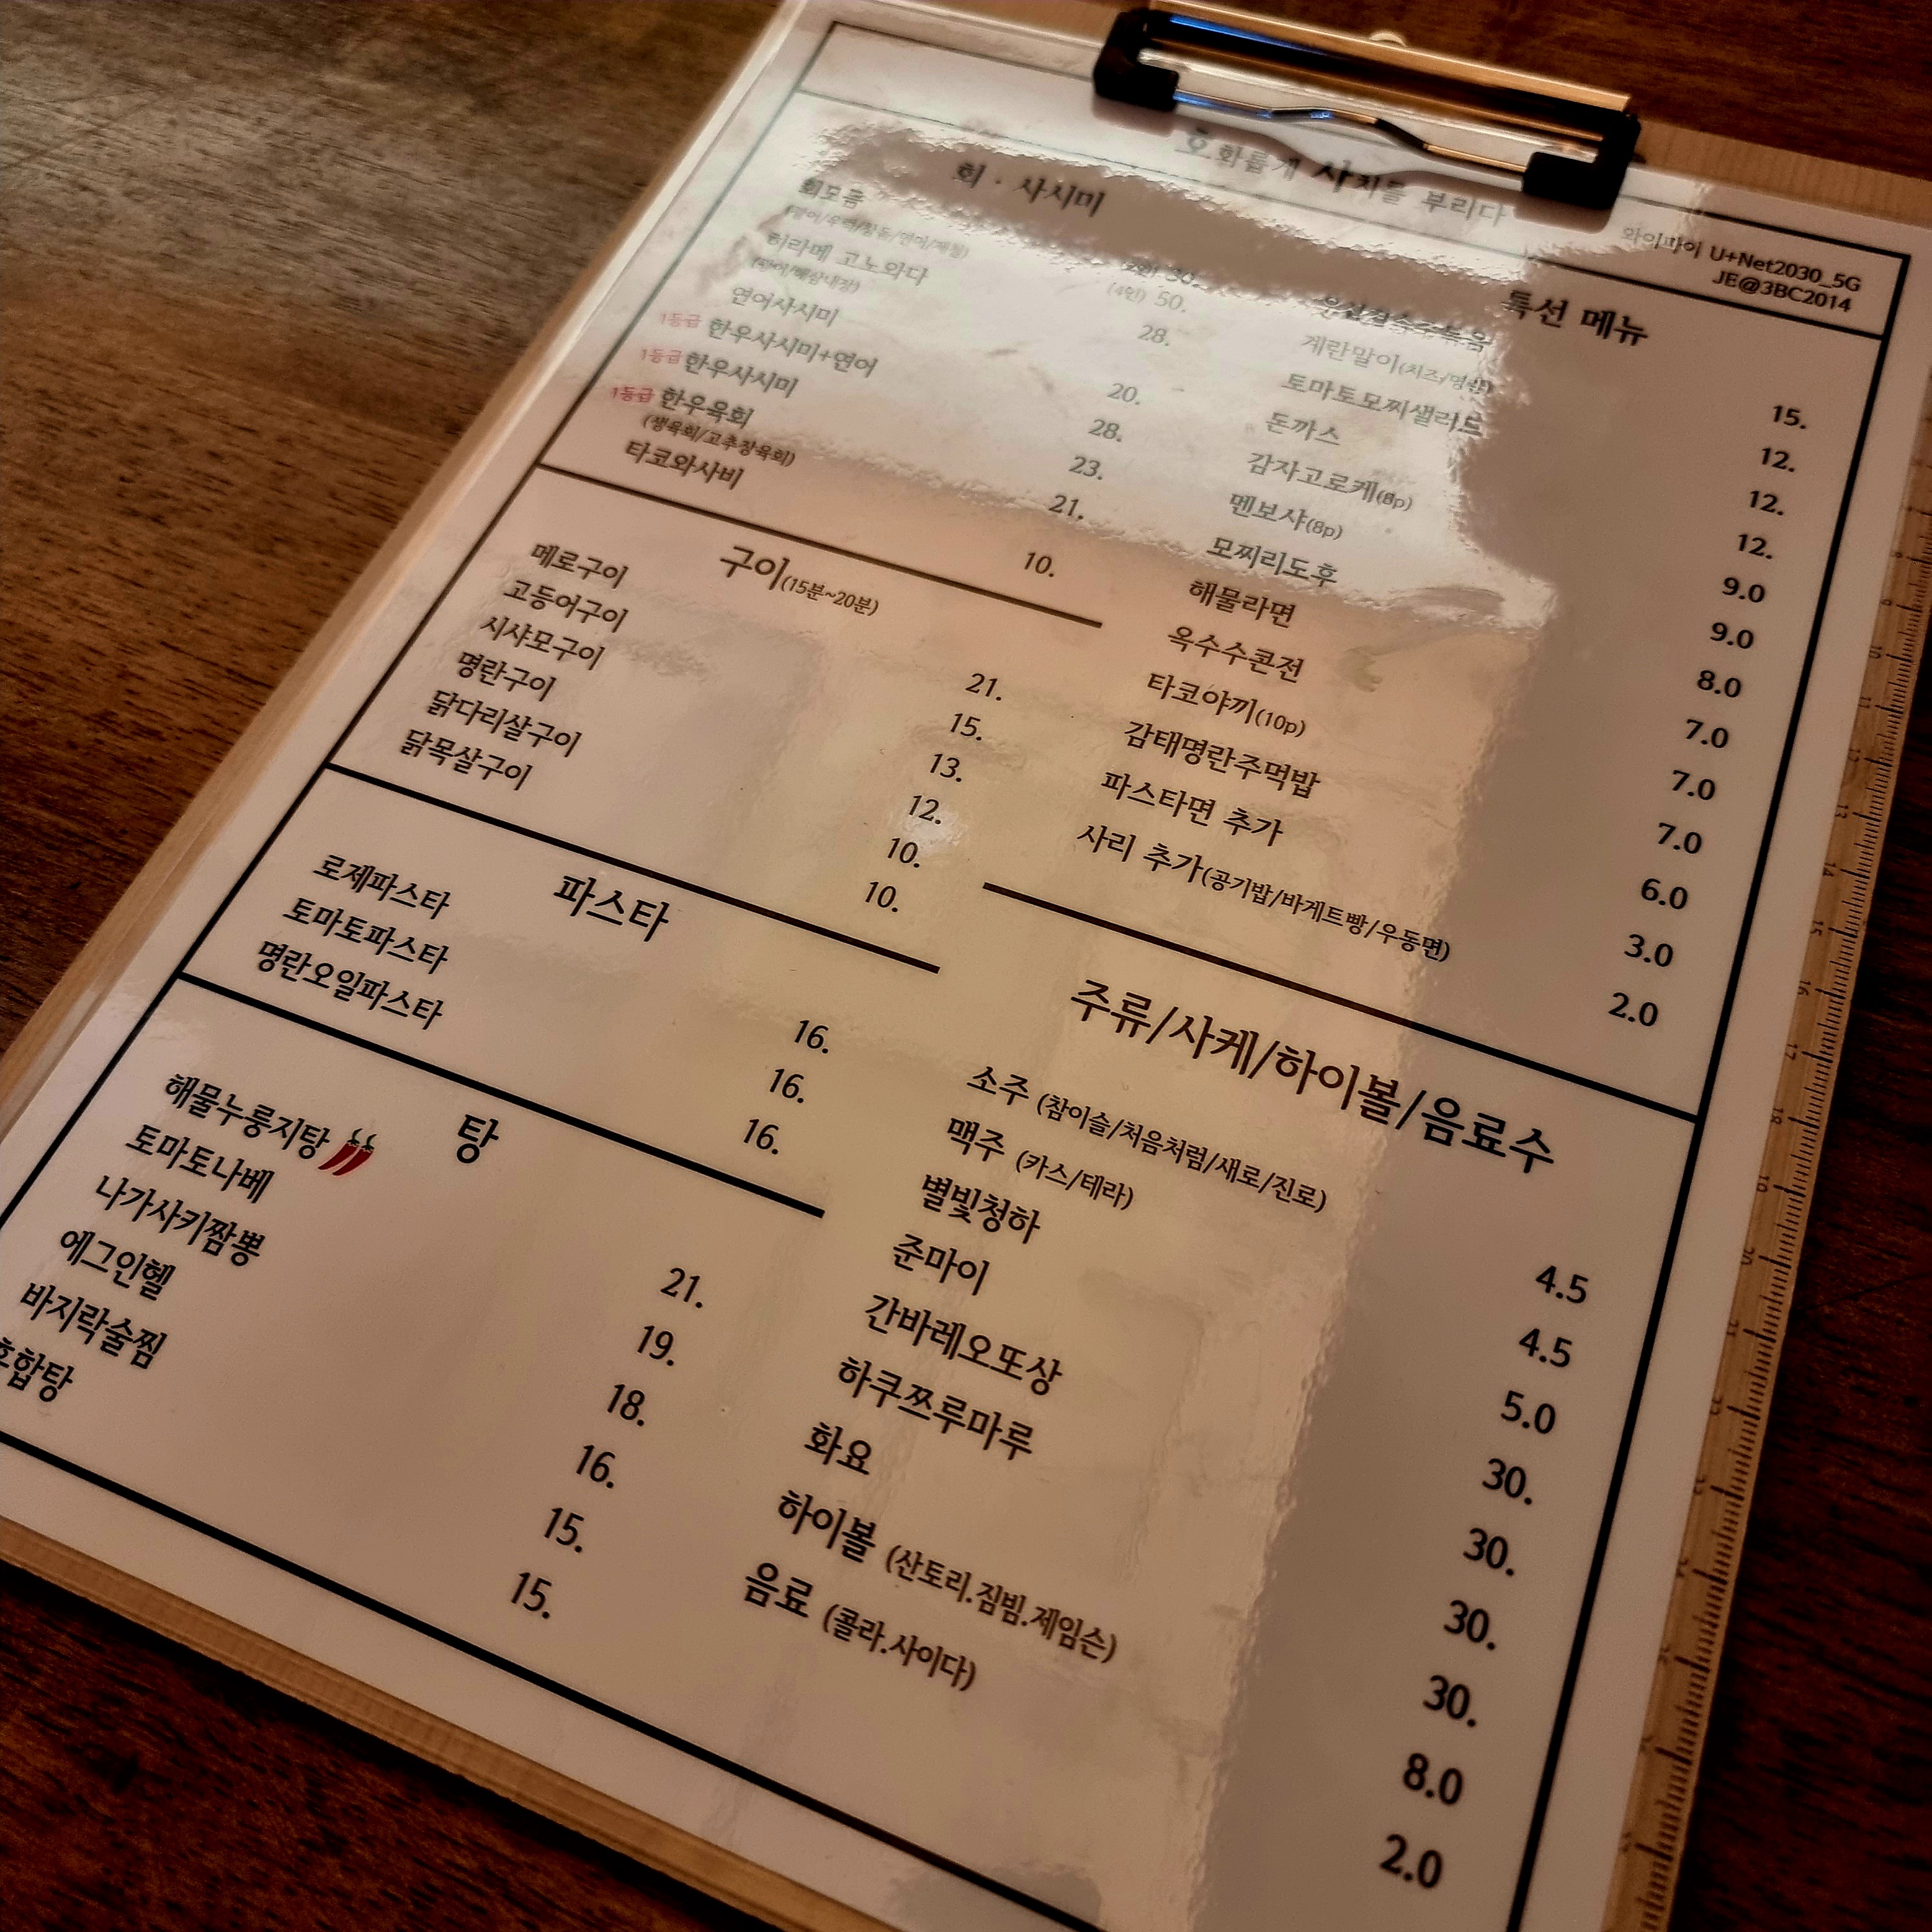 호화롭게 사치를 부리다
와이파이 U+Net2030_5G
JE@3BC2014
회 · 사시미
회모듬
30.
(4인) 50.
히라메 고노와다 28.
(광어/해삼내장)
연어사시미 20.
1등급 한우사시미+연어 28.
1등급 한우사시미 23.
1등급 한우육회 21.
(생육회/고추장육회)
타코와사비 10.
구이(15분~20분)
메로구이 21.
고등어구이 15.
시샤모구이 13.
명란구이 12.
닭다리살구이 10.
닭목살구이 10.
파스타
로제파스타 16.
토마토파스타 16.
명란오일파스타 16.
탕
해물누룽지탕 21.
토마토나베 19.
나가사키짬뽕 18.
에그인헬 16.
바지락술찜 15.
합탕 15.
특선 메뉴
15.
계란말이(치즈/명란) 12.
토마토모찌샐러드 12.
돈까스 12.
감자고로케(8p) 9.0
멘보샤(8p) 9.0
모찌리도후 8.0
해물라면 7.0
옥수수콘전 7.0
타코야끼(10p) 7.0
감태명란주먹밥 6.0
파스타면 추가 3.0
사리 추가(공기밥/바게트빵/우동면) 2.0
주류/사케/하이볼/음료수
소주 (참이슬/처음처럼/새로/진로) 4.5
맥주 (카스/테라) 4.5
별빛청하 5.0
준마이 30.
간바레오또상 30.
하쿠쯔루마루 30.
화요 30.
하이볼 (산토리.짐빔.제임슨) 8.0
음료 (콜라.사이다) 2.0